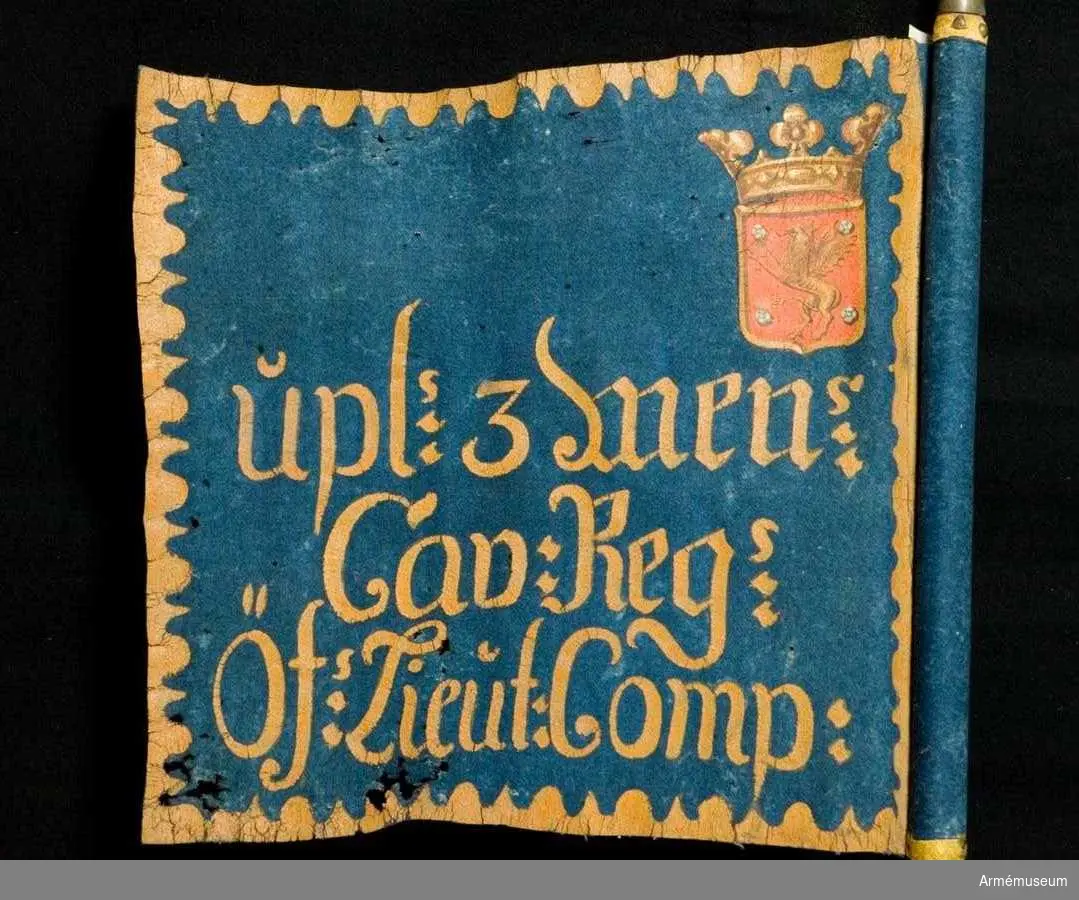 ŭpl:s 3 Men:s
Cav: Reg:s
Öf:s Lieŭt: Comp:
Armémuseum